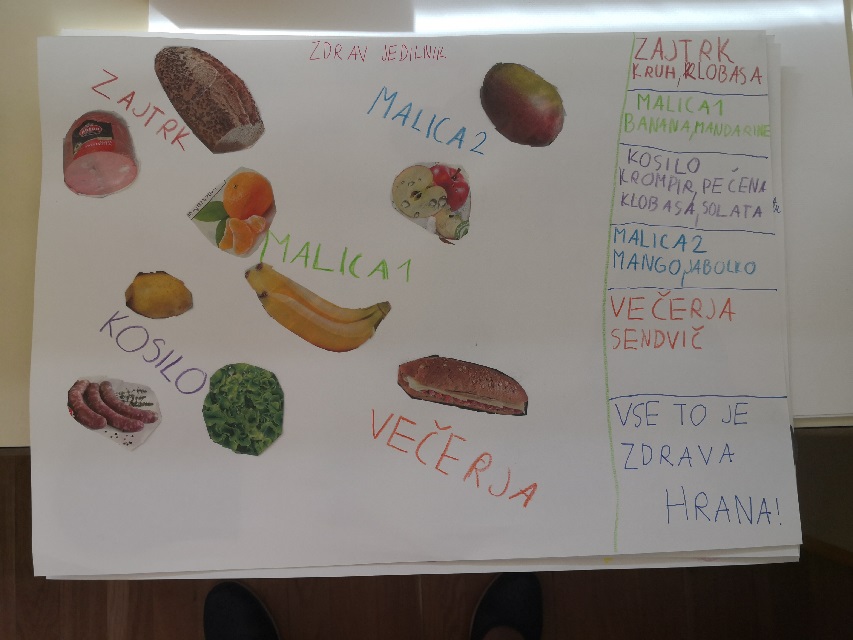 ZDRAV JEDILNIK
ZAJTRK
MALICA2
MALICA1
KOSILO
VEČERJA
ZAJTRK
KRUH, KLOBASA
MALICA1
BANANA, MANDARINE
KOSILO
KROMPIR, PEČENA
KLOBASA, SOLATA
MALICA2
MANGO, JABOLKO
VEČERJA
SENDVIČ
VSE TO JE
ZDRAVA
HRANA!